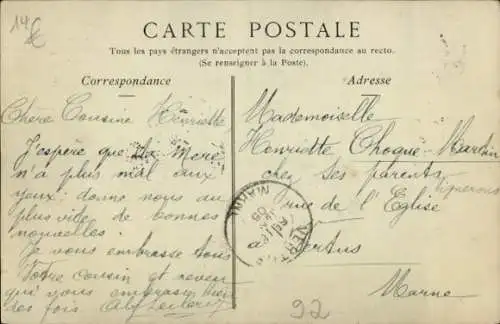 14€
CARTE POSTALE
Tous les pays étrangers n'acceptent pas la correspondance au recto.
(Se renseigner à la Poste).
Correspondance
Chère Cousine Henriette
J'espère que ta mère
n'a plus mal aux
yeux; donne nous au
plus vite de bonnes
nouvelles.
Je vous embrasse tous
Votre cousin et neveu
qui vous embrasse bien
des fois
Adresse
Mademoiselle
Henriette Choque-Martin
chez ses parents
vignerons
rue de l'Eglise
à Vertus
Marne
VERTUS
MARNE
92